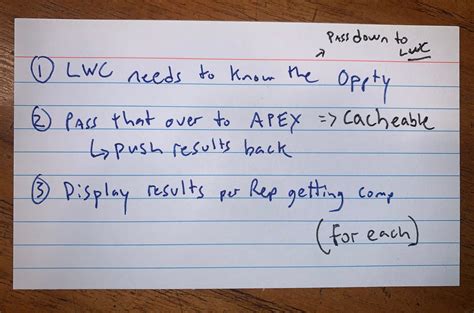 ↗ Pass down to
LWC
① LWC needs to know the Oppty
② Pass that over to APEX => Cacheable
↳ push results back
③ Display results per Rep getting comp
(for each)